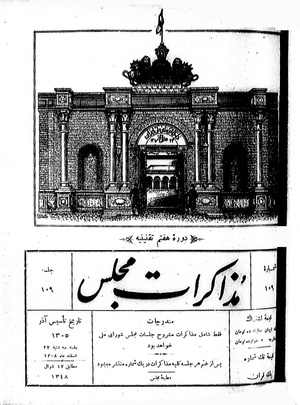 دورهٔ هفتم تقنینیه
جلسه
۱۰۹
مذاکرات مجلس
شماره
۱۰۹
تاریخ تأسیس آذر
۱۳۰۵
جلسه سه شنبه ۲۷
اسفند ماه ۱۳۰۸
مطابق ۱۷ شوال
۱۳۴۸
مندرجات
فقط شامل مذاکرات مشروح جلسات مجلس شورای ملی
خواهد بود
پس از ختم هر جلسه کلیه مذاکرات در یک شماره منتشر میشود
مطبعهٔ مجلس
قیمت اشتراک
قیمت تک شماره
یک قران